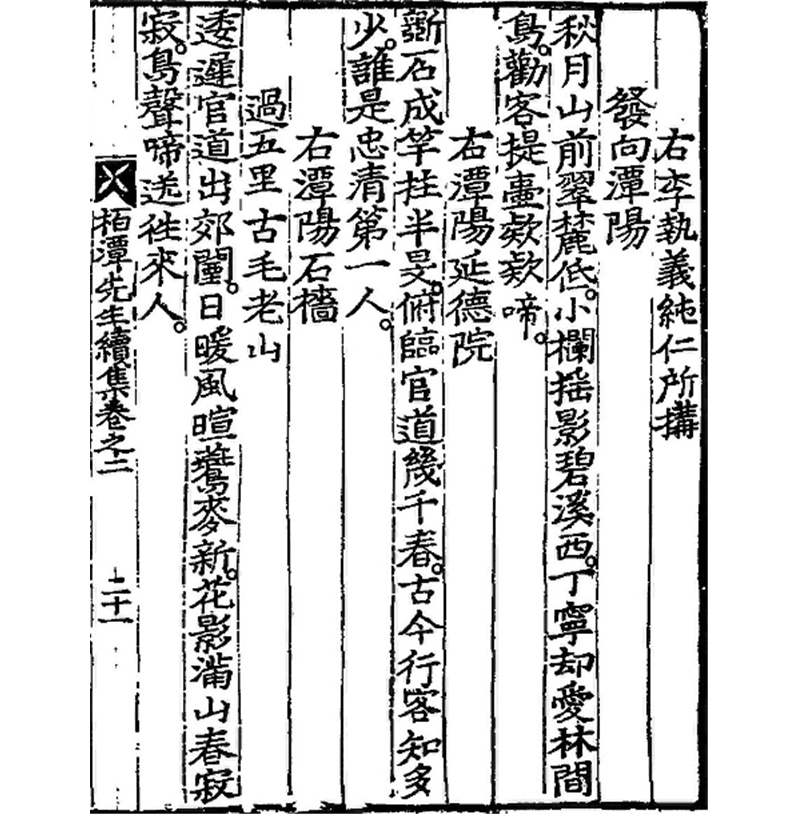 右李執義純仁所搆
發向潭陽
秋月山前翠麓低。小欄搖影碧溪西。丁寧却愛林間
鳥。勸客提壺欵欵啼。
右潭陽延德院
斲石成竿拄半旻。俯臨官道幾千春。古今行客知多
少。誰是忠淸第一人。
右潭陽石檣
過五里古毛老山
逶遲官道出郊闉。日暖風暄薺麥新。花影滿山春寂
寂。鳥聲啼送往來人。
栢潭先生續集卷之二
二十一